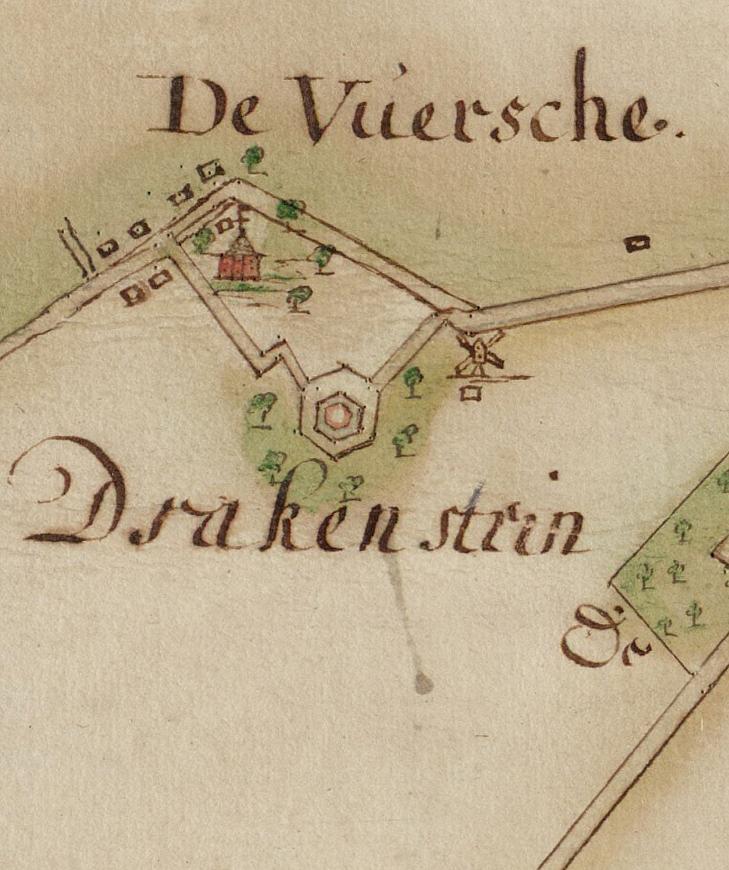 De Vuersche.
Drakenstein
De